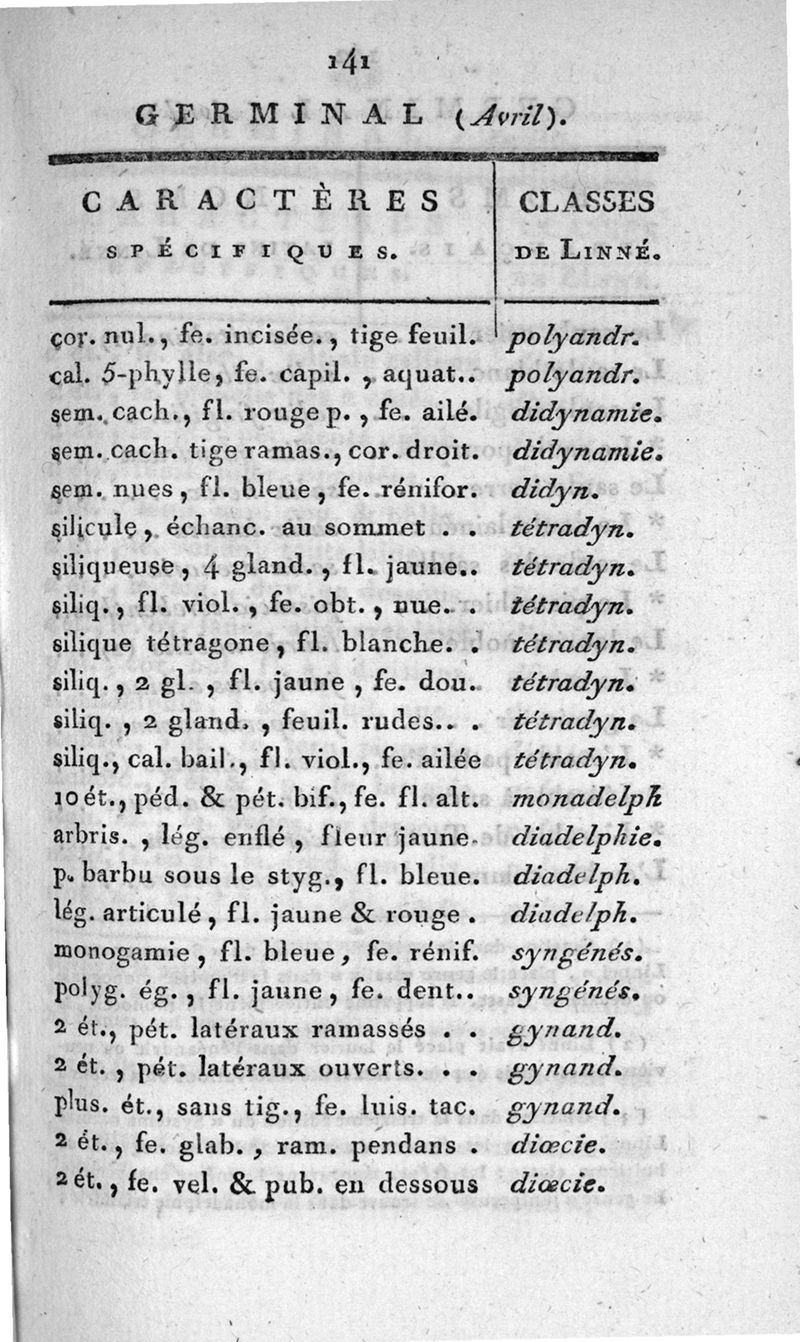 141
GERMINAL (Avril).
CARACTÈRES CLASSES
SPÉCIFIQUES. DE LINNÉ.
cor. nul., fe. incisée., tige feuil. polyandr.
cal. 5-phylle, fe. capil. , aquat.. polyandr.
sem. cach., fl. rouge p. , fe. ailé. didynamie.
sem. cach. tige ramas., cor. droit. didynamie.
sem. nues, fl. bleue, fe. rénifor. didyn.
silicule, échanc. au sommet . . tétradyn.
siliqueuse, 4 gland. , fl. jaune.. tétradyn.
siliq. , fl. viol. , fe. obt. , nue. . tétradyn.
silique tétragone, fl. blanche. . tétradyn.
siliq. , 2 gl. , fl. jaune , fe. dou. tétradyn.
siliq. , 2 gland. , feuil. rudes.. . tétradyn.
siliq., cal. bail., fl. viol., fe. ailée tétradyn.
10 ét., péd. & pét. bif., fe. fl. alt. monadelph
arbris. , lég. enflé , fleur jaune. diadelphie.
p. barbu sous le styg., fl. bleue. diadelph.
lég. articulé, fl. jaune & rouge . diadelph.
monogamie, fl. bleue, fe. rénif. syngénés.
polyg. ég. , fl. jaune, fe. dent.. syngénés.
2 ét., pét. latéraux ramassés . . gynand.
2 ét. , pét. latéraux ouverts. . . gynand.
plus. ét., sans tig., fe. luis. tac. gynand.
2 ét. , fe. glab. , ram. pendans . diœcie.
2 ét. , fe. vel. & pub. en dessous diœcie.